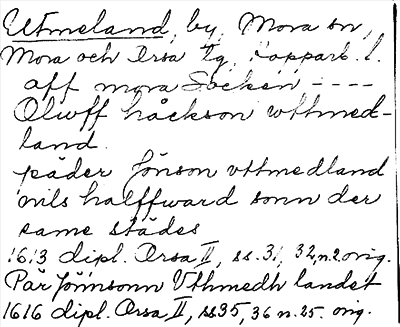 Utmeland, by, Mora sn,
Mora och Orsa tg, Kopparb. l.
aff mora Socken ----
Oluff håckson wttmed-
land.
päder Jönson vttmedland
nils halffward sonn der
same städes
1613 dipl. Orsa II, ss. 31, 32, n. 2 orig.
Pär Jönnsonn Vthmedh landet
1616 dipl. Orsa II, ss 35, 36 n. 25. orig.